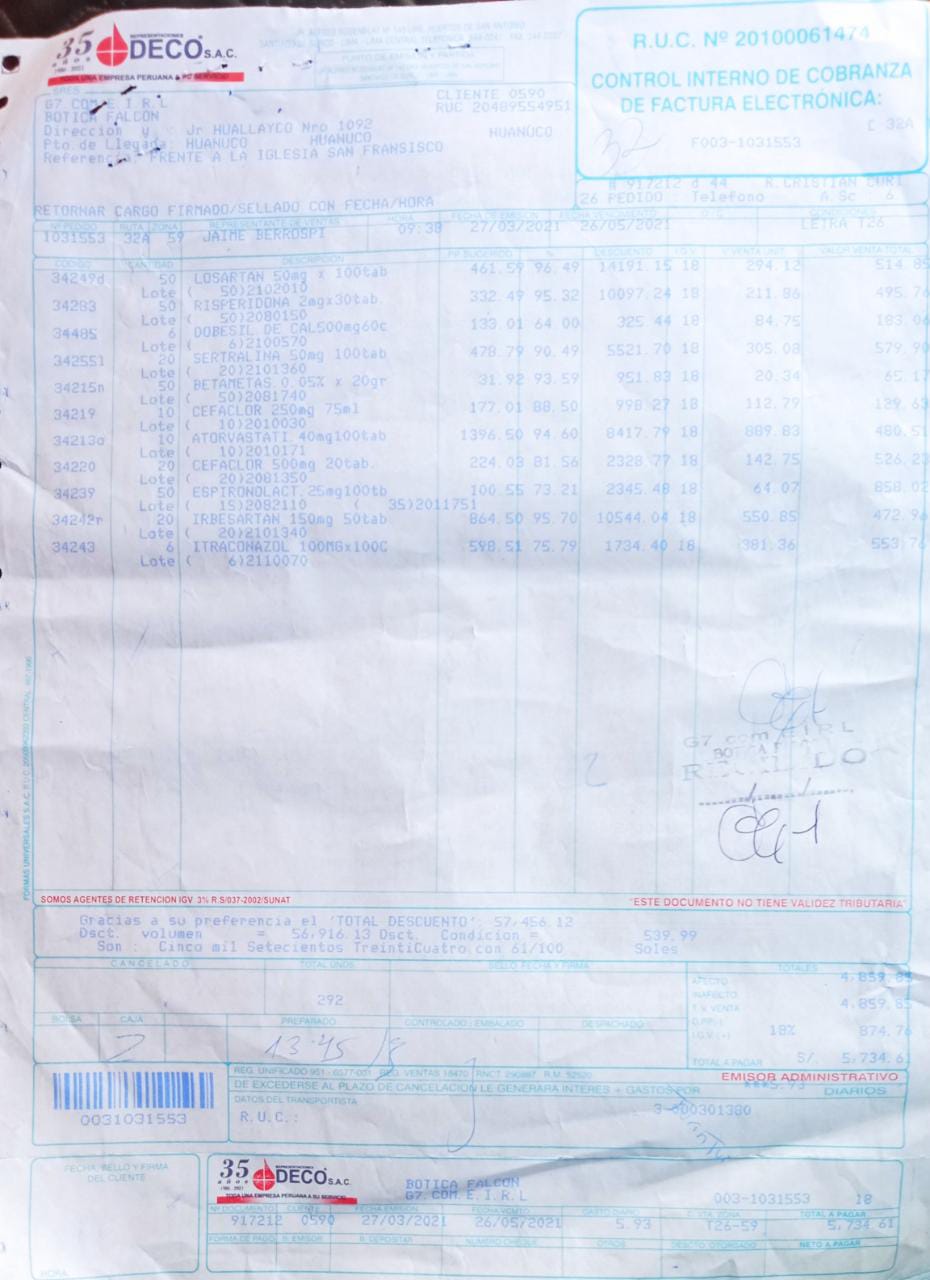 35 años
1986 - 2021
REPRESENTACIONES
DECO S.A.C.
TODA UNA EMPRESA PERUANA A SU SERVICIO
R.U.C. Nº 20100061474
CONTROL INTERNO DE COBRANZA
DE FACTURA ELECTRÓNICA:
C 32A
32
F003-1031553
SRES
G7 COM E.I.R.L
BOTICA FALCON
CLIENTE 0590
RUC 20489554951
Direccion y : Jr HUALLAYCO Nro 1092
HUANUCO
Pto.de Llegada: HUANUCO HUANUCO
Referencia: FRENTE A LA IGLESIA SAN FRANSISCO
# 917212 d 44 R.CRISTIAN CURI
26 PEDIDO S: Telefono A.Sc : 6
RETORNAR CARGO FIRMADO/SELLADO CON FECHA/HORA
Nº PEDIDO RUTA ZONA REPRESENTANTE DE VENTAS HORA FECHA DE EMISION FECHA VENCIMIENTO O/C CONDICIONES
1031553 32A 59 JAIME BERROSPI 09:38 27/03/2021 26/05/2021 LETRA T26
CODIGO CANTIDAD DESCRIPCION P.P SUGERIDO % DESCUENTO I.G.V. V.VENTA UNIT. VALOR VENTA TOTAL
34249d 50 LOSARTAN 50mg x 100tab 461.59 96.49 14191.15 18 294.12 514.85
Lote ( 50)2102010
34283 50 RISPERIDONA 2mgx30tab. 332.49 95.32 10097.24 18 211.86 495.76
Lote ( 50)2080150
34485 6 DOBESIL DE CAL500mg60c 133.01 64.00 325.44 18 84.75 183.06
Lote ( 6)2100570
342551 20 SERTRALINA 50mg 100tab 478.79 90.49 5521.70 18 305.08 579.90
Lote ( 20)2101360
34215n 50 BETAMETAS.0.05% x 20gr 31.92 93.59 951.83 18 20.34 65.17
Lote ( 50)2081740
34219 10 CEFACLOR 250mg 75ml 177.01 88.50 998.27 18 112.79 129.63
Lote ( 10)2010030
34213a 10 ATORVASTATI.40mg100tab 1396.50 94.60 8417.79 18 889.83 480.51
Lote ( 10)2010171
34220 20 CEFACLOR 500mg 20tab. 224.03 81.56 2328.77 18 142.75 526.23
Lote ( 20)2081350
34239 50 ESPIRONOLACT.25mg100tb 100.55 73.21 2345.48 18 64.07 858.02
Lote ( 15)2082110 ( 35)2011751
34242r 20 IRBESARTAN 150mg 50tab 864.50 95.70 10544.04 18 550.85 472.96
Lote ( 20)2101340
34243 6 ITRACONAZOL 100MGx100C 598.51 75.79 1734.40 18 381.36 553.76
Lote ( 6)2110070
G7 com EIRL
BOTICA
2
SOMOS AGENTES DE RETENCION IGV 3% R.S/037-2002/SUNAT
"ESTE DOCUMENTO NO TIENE VALIDEZ TRIBUTARIA"
Gracias a su preferencia el 'TOTAL DESCUENTO': 57,456.12
Dsct. volumen = 56,916.13 Dsct. Condicion = 539.99
Son : Cinco mil Setecientos TreintiCuatro con 61/100 Soles
CANCELADO TOTAL UNDS SELLO, FECHA Y FIRMA TOTALES
292
AFECTO 4,859.85
INAFECTO
T.V. VENTA 4,859.85
I.G.V.(+) 18% 874.76
TOTAL A PAGAR S/. 5,734.61
BOLSA CAJA PREPARADO CONTROLADO - EMBALADO DESPACHADO
2 13:45
EMISOR ADMINISTRATIVO
DE EXCEDERSE AL PLAZO DE CANCELACION LE GENERARA INTERES + GASTOS POR ***5.93 DIARIOS
DATOS DEL TRANSPORTISTA
3-000301380
R.U.C.:
0031031553
FECHA, SELLO Y FIRMA
DEL CLIENTE
HORA
35 años
1986 - 2021
REPRESENTACIONES
DECO S.A.C.
TODA UNA EMPRESA PERUANA A SU SERVICIO
BOTICA FALCON
G7 COM E.I.R.L
003-1031553 18
Nº DOCUMENTO CLIENTE FECHA EMISION FECHA VCMTO GASTO DIARIO C. VTA. ZONA TOTAL A PAGAR
917212 0590 27/03/2021 26/05/2021 5.93 T26-59 5,734.61
FORMA DE PAGO B. EMISOR B. DEPOSITAR NUMERO CHEQUE OTROS DESCTO. OTORGADO NETO A PAGAR